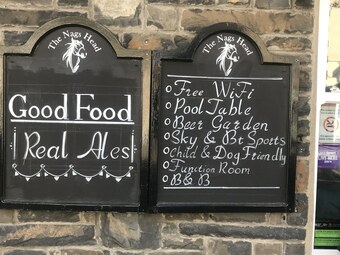 The Nags Head
Good Food
Real Ales!
The Nags Head
Free WiFi
Pool Table
Beer Garden
Sky & Bt Sports
Child & Dog Friendly
Function Room
B&B